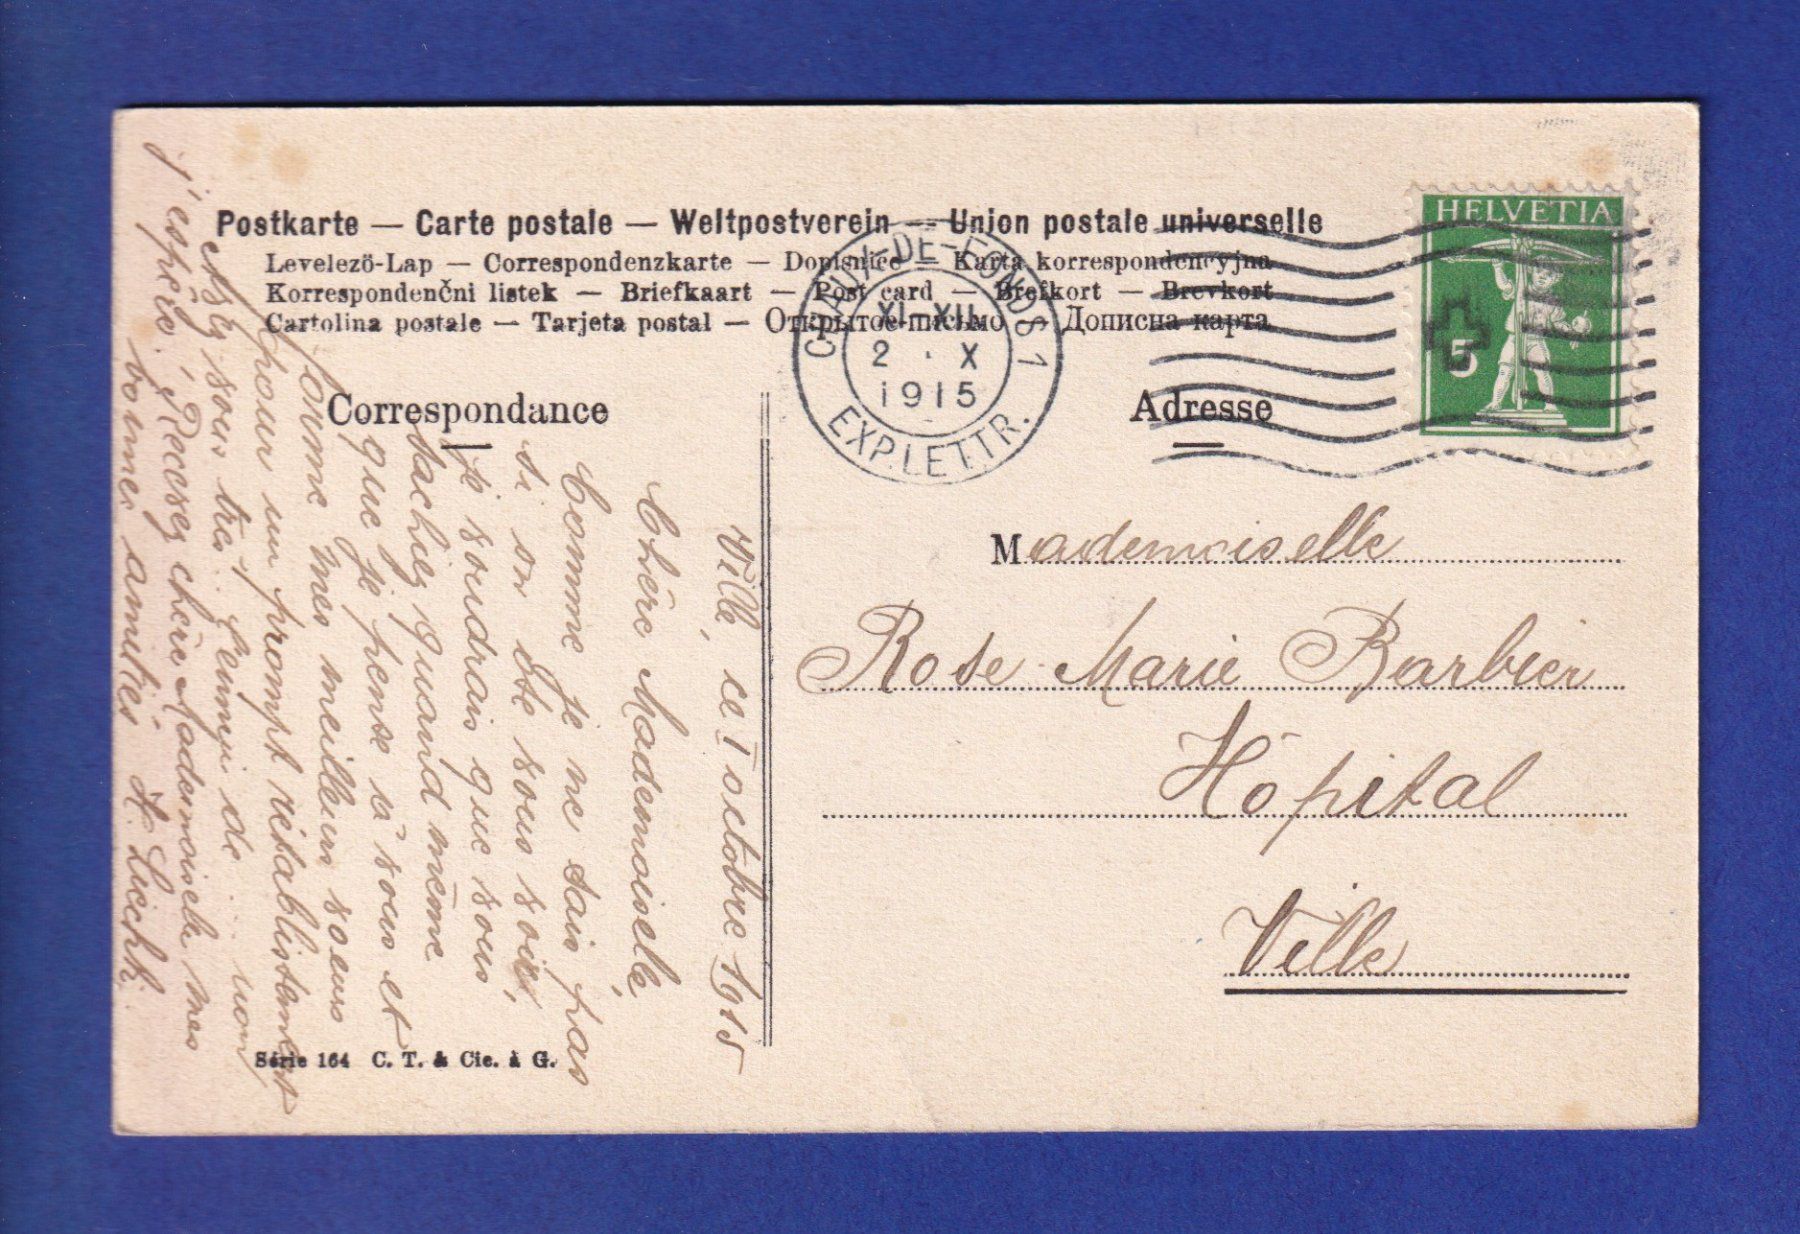 Postkarte — Carte postale — Weltpostverein — Union postale universelle
Levelezö-Lap — Correspondenzkarte — Dopisnice — Karta korrespondencyjna
Korrespondenčni listek — Briefkaart — Post card — Brefkort — Brevkort
Cartolina postale — Tarjeta postal — Открытое письмо — Дописна карта
Correspondance
Adresse
HELVETIA
5
CHAUX-DE-FONDS 1
XI-XII
2 · X
1915
EXP. LETTR.
Mademoiselle
Rose Marie Barbier
Hôpital
Ville
Ville, ce 1 octobre 1915
Chère Mademoiselle,
Comme je ne sais pas
si on ose vous voir,
je voudrais que vous
sachiez quand même
que je pense à vous et
forme mes meilleurs voeux
pour un prompt rétablissement
vous très
l'ennui de ... non
j'espère. Recevez chère Mademoiselle mes
bonnes amitiés
Série 164 C. T. & Cie. à G.